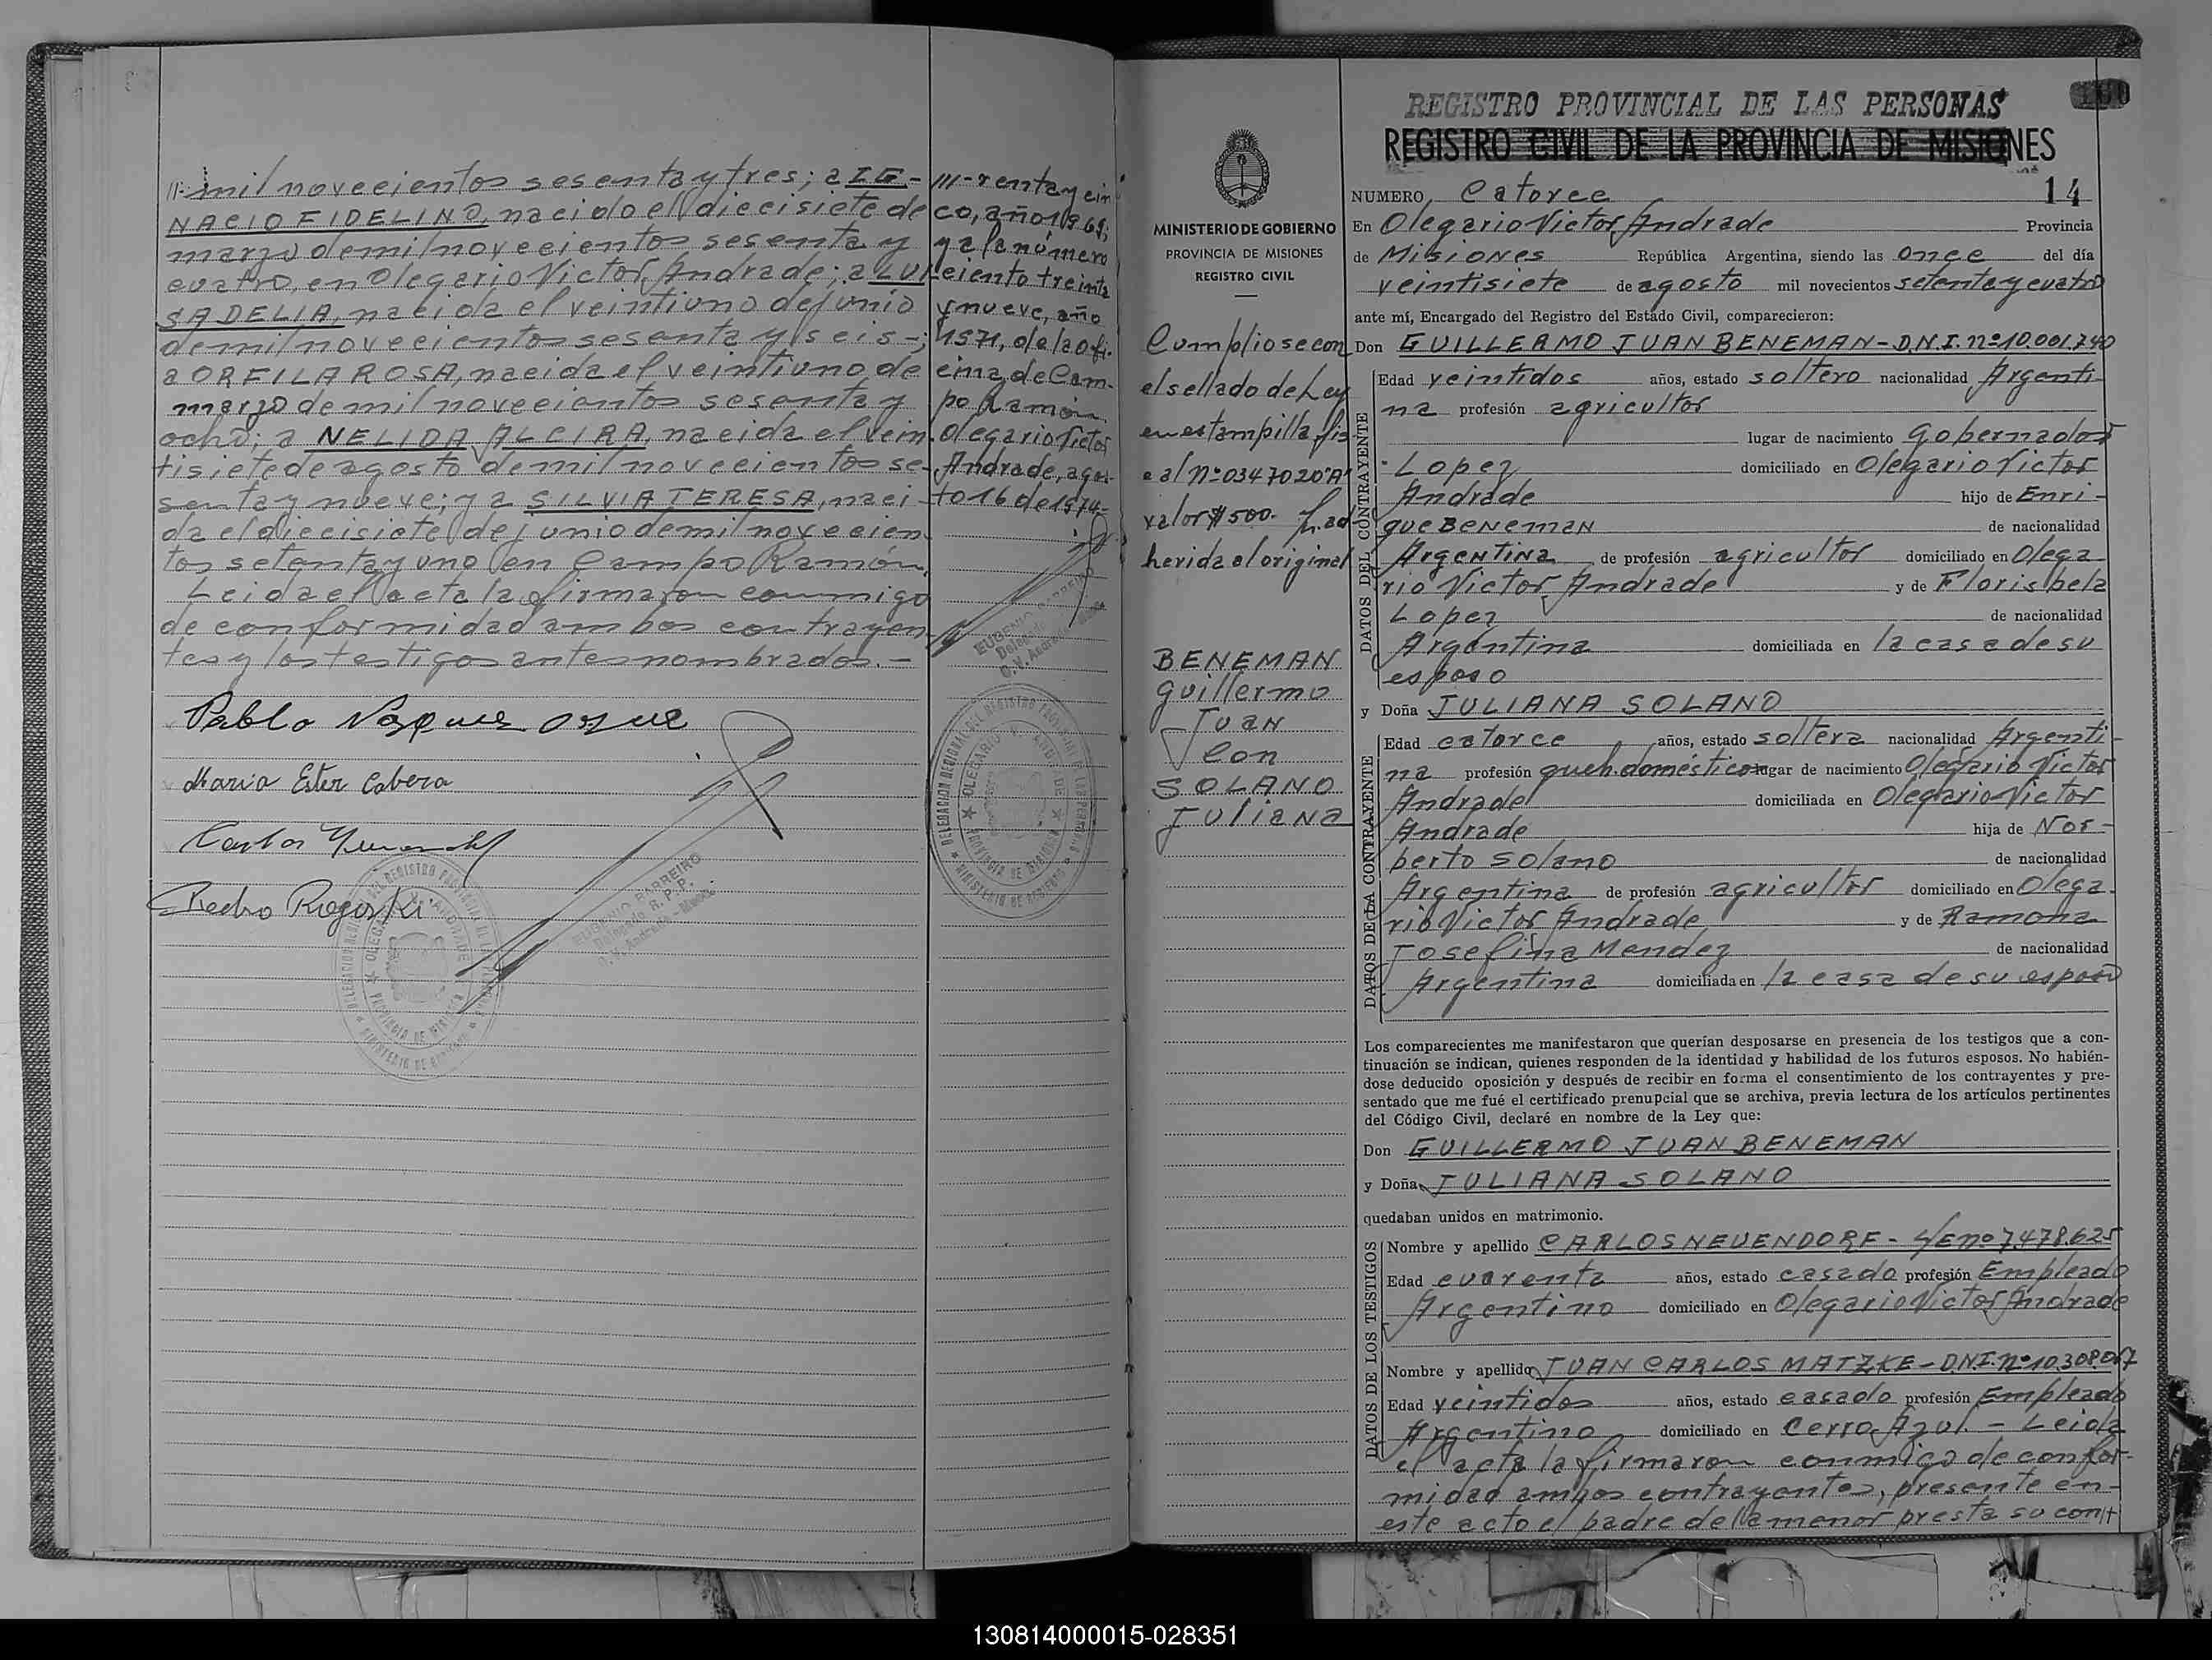 mil novecientos sesenta y tres; a IG-
NACIO FIDELINO, nacido el diecisiete de
marzo de mil novecientos sesenta y
cuatro, en Olegario Victor Andrade; a LUI
SA DELIA, nacida el veintiuno de junio
de mil novecientos sesenta y seis-;
a ORFILA ROSA, nacida el veintiuno de
marzo de mil novecientos sesenta y
ocho; a NELIDA ALCIRA, nacida el vein
tisiete de agosto de mil novecientos se-
senta y nueve; y a SILVIA TERESA, naci-
da el diecisiete de junio de mil novecien
tos setenta y uno en Campo Ramón.
Leida el acta la firmaron conmigo
de conformidad ambos contrayen-
tes y los testigos antes nombrados.-
Pablo
Maria Ester Cabera
Carlos
Pedro Rogoski
EUGENIO BARREIRO
Delegado R. P. P.
O. V. Andrade - Mnes.
DELEGACION REGIONAL DEL REGISTRO PROVINCIAL DE LAS PERSONAS
OLEGARIO V. ANDRADE
PROVINCIA DE MISIONES
MINISTERIO DE GOBIERNO
///-renta y cin
co, año 1969;
y a la número
ciento treinta
y nueve, año
1571, de la ofi-
cina de Cam-
po Ramón
Olegario Victor
Andrade, agos-
to 16 de 1974-
EUGENIO BARREIRO
Delegado
O. V. Andrade
DELEGACION REGIONAL DEL REGISTRO PROVINCIAL DE LAS PERSONAS
OLEGARIO V. ANDRADE
PROVINCIA DE MISIONES
MINISTERIO DE GOBIERNO
MINISTERIO DE GOBIERNO
PROVINCIA DE MISIONES
REGISTRO CIVIL
Cumpliose con
el sellado de Ley
en estampilla fis-
cal Nº 0347020"A"
valor $ 500.- ad-
herida al original
BENEMAN
Guillermo
Juan
con
SOLANO
Juliana
REGISTRO PROVINCIAL DE LAS PERSONAS
REGISTRO CIVIL DE LA PROVINCIA DE MISIONES
NUMERO Catorce 14
En Olegario Victor Andrade Provincia
de Misiones República Argentina, siendo las once del día
veintisiete de agosto mil novecientos setenta y cuatro
ante mí, Encargado del Registro del Estado Civil, comparecieron:
Don GUILLERMO JUAN BENEMAN-D.N.I. nº 10.001.740
DATOS DEL CONTRAYENTE
Edad veintidos años, estado soltero nacionalidad Argenti-
na profesión agricultor
lugar de nacimiento Gobernador
Lopez domiciliado en Olegario Victor
Andrade hijo de Enri-
que BENEMAN de nacionalidad
Argentina de profesión agricultor domiciliado en Olega
rio Victor Andrade y de Florisbela
Lopez de nacionalidad
Argentina domiciliada en la casa de su
esposo
y Doña JULIANA SOLANO
DATOS DE LA CONTRAYENTE
Edad catorce años, estado soltera nacionalidad Argenti-
na profesión queh. domésticos lugar de nacimiento Olegario Victor
Andrade domiciliada en Olegario Victor
Andrade hija de Nor-
berto Solano de nacionalidad
Argentina de profesión agricultor domiciliado en Olega-
rio Victor Andrade y de Ramona
Josefina Mendez de nacionalidad
Argentina domiciliada en la casa de su esposo
Los comparecientes me manifestaron que querían desposarse en presencia de los testigos que a con-
tinuación se indican, quienes responden de la identidad y habilidad de los futuros esposos. No habién-
dose deducido oposición y después de recibir en forma el consentimiento de los contrayentes y pre-
sentado que me fué el certificado prenupcial que se archiva, previa lectura de los artículos pertinentes
del Código Civil, declaré en nombre de la Ley que:
Don GUILLERMO JUAN BENEMAN
y Doña JULIANA SOLANO
quedaban unidos en matrimonio.
DATOS DE LOS TESTIGOS
Nombre y apellido CARLOS NEUENDORF- L/E nº 7.478.625
Edad cuarenta años, estado casado profesión Empleado
Argentino domiciliado en Olegario Victor Andrade
Nombre y apellido JUAN CARLOS MATZKE-D.N.I. nº 10.308.067
Edad veintidos años, estado casado profesión Empleado
Argentino domiciliado en Cerro Azul.- Leida
el acta la firmaron conmigo de confor-
midad ambos contrayentes, presente en-
este acto el padre de la menor presta su con
130814000015-028351